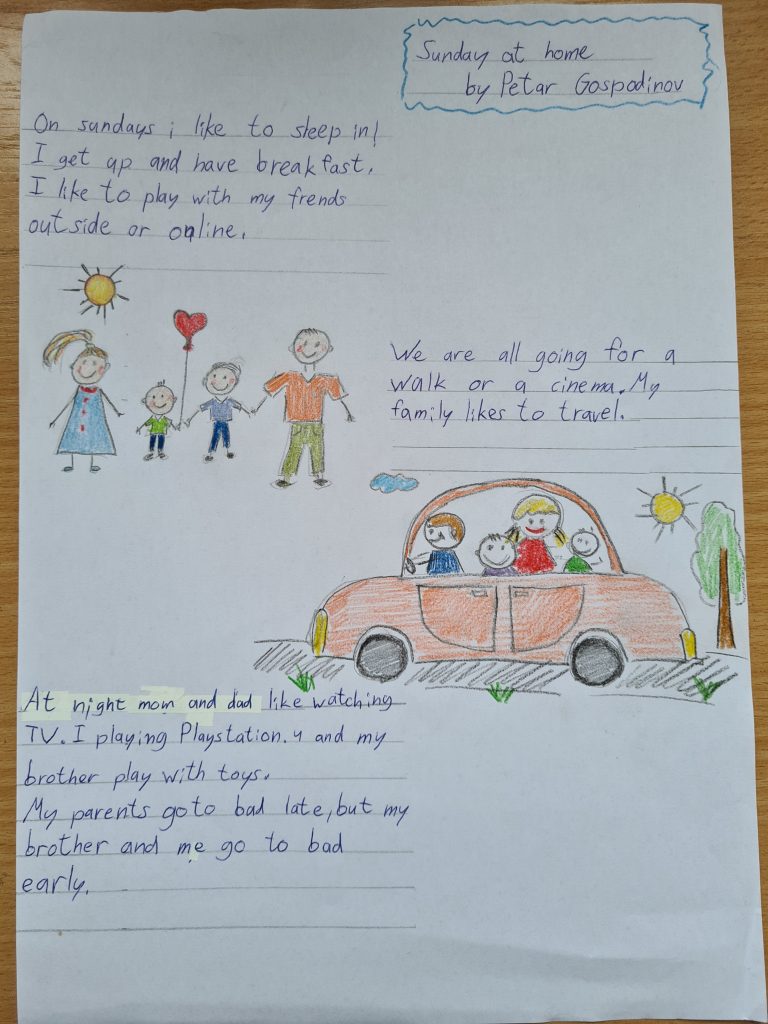 Sunday at home
by Petar Gospodinov
On sundays i like to sleep in!
I get up and have breakfast.
I like to play with my frends
outside or online.
We are all going for a
walk or a cinema. My
family likes to travel.
At night mom and dad like watching
TV. I playing Playstation.4 and my
brother play with toys.
My parents go to bad late, but my
brother and me go to bad
early.